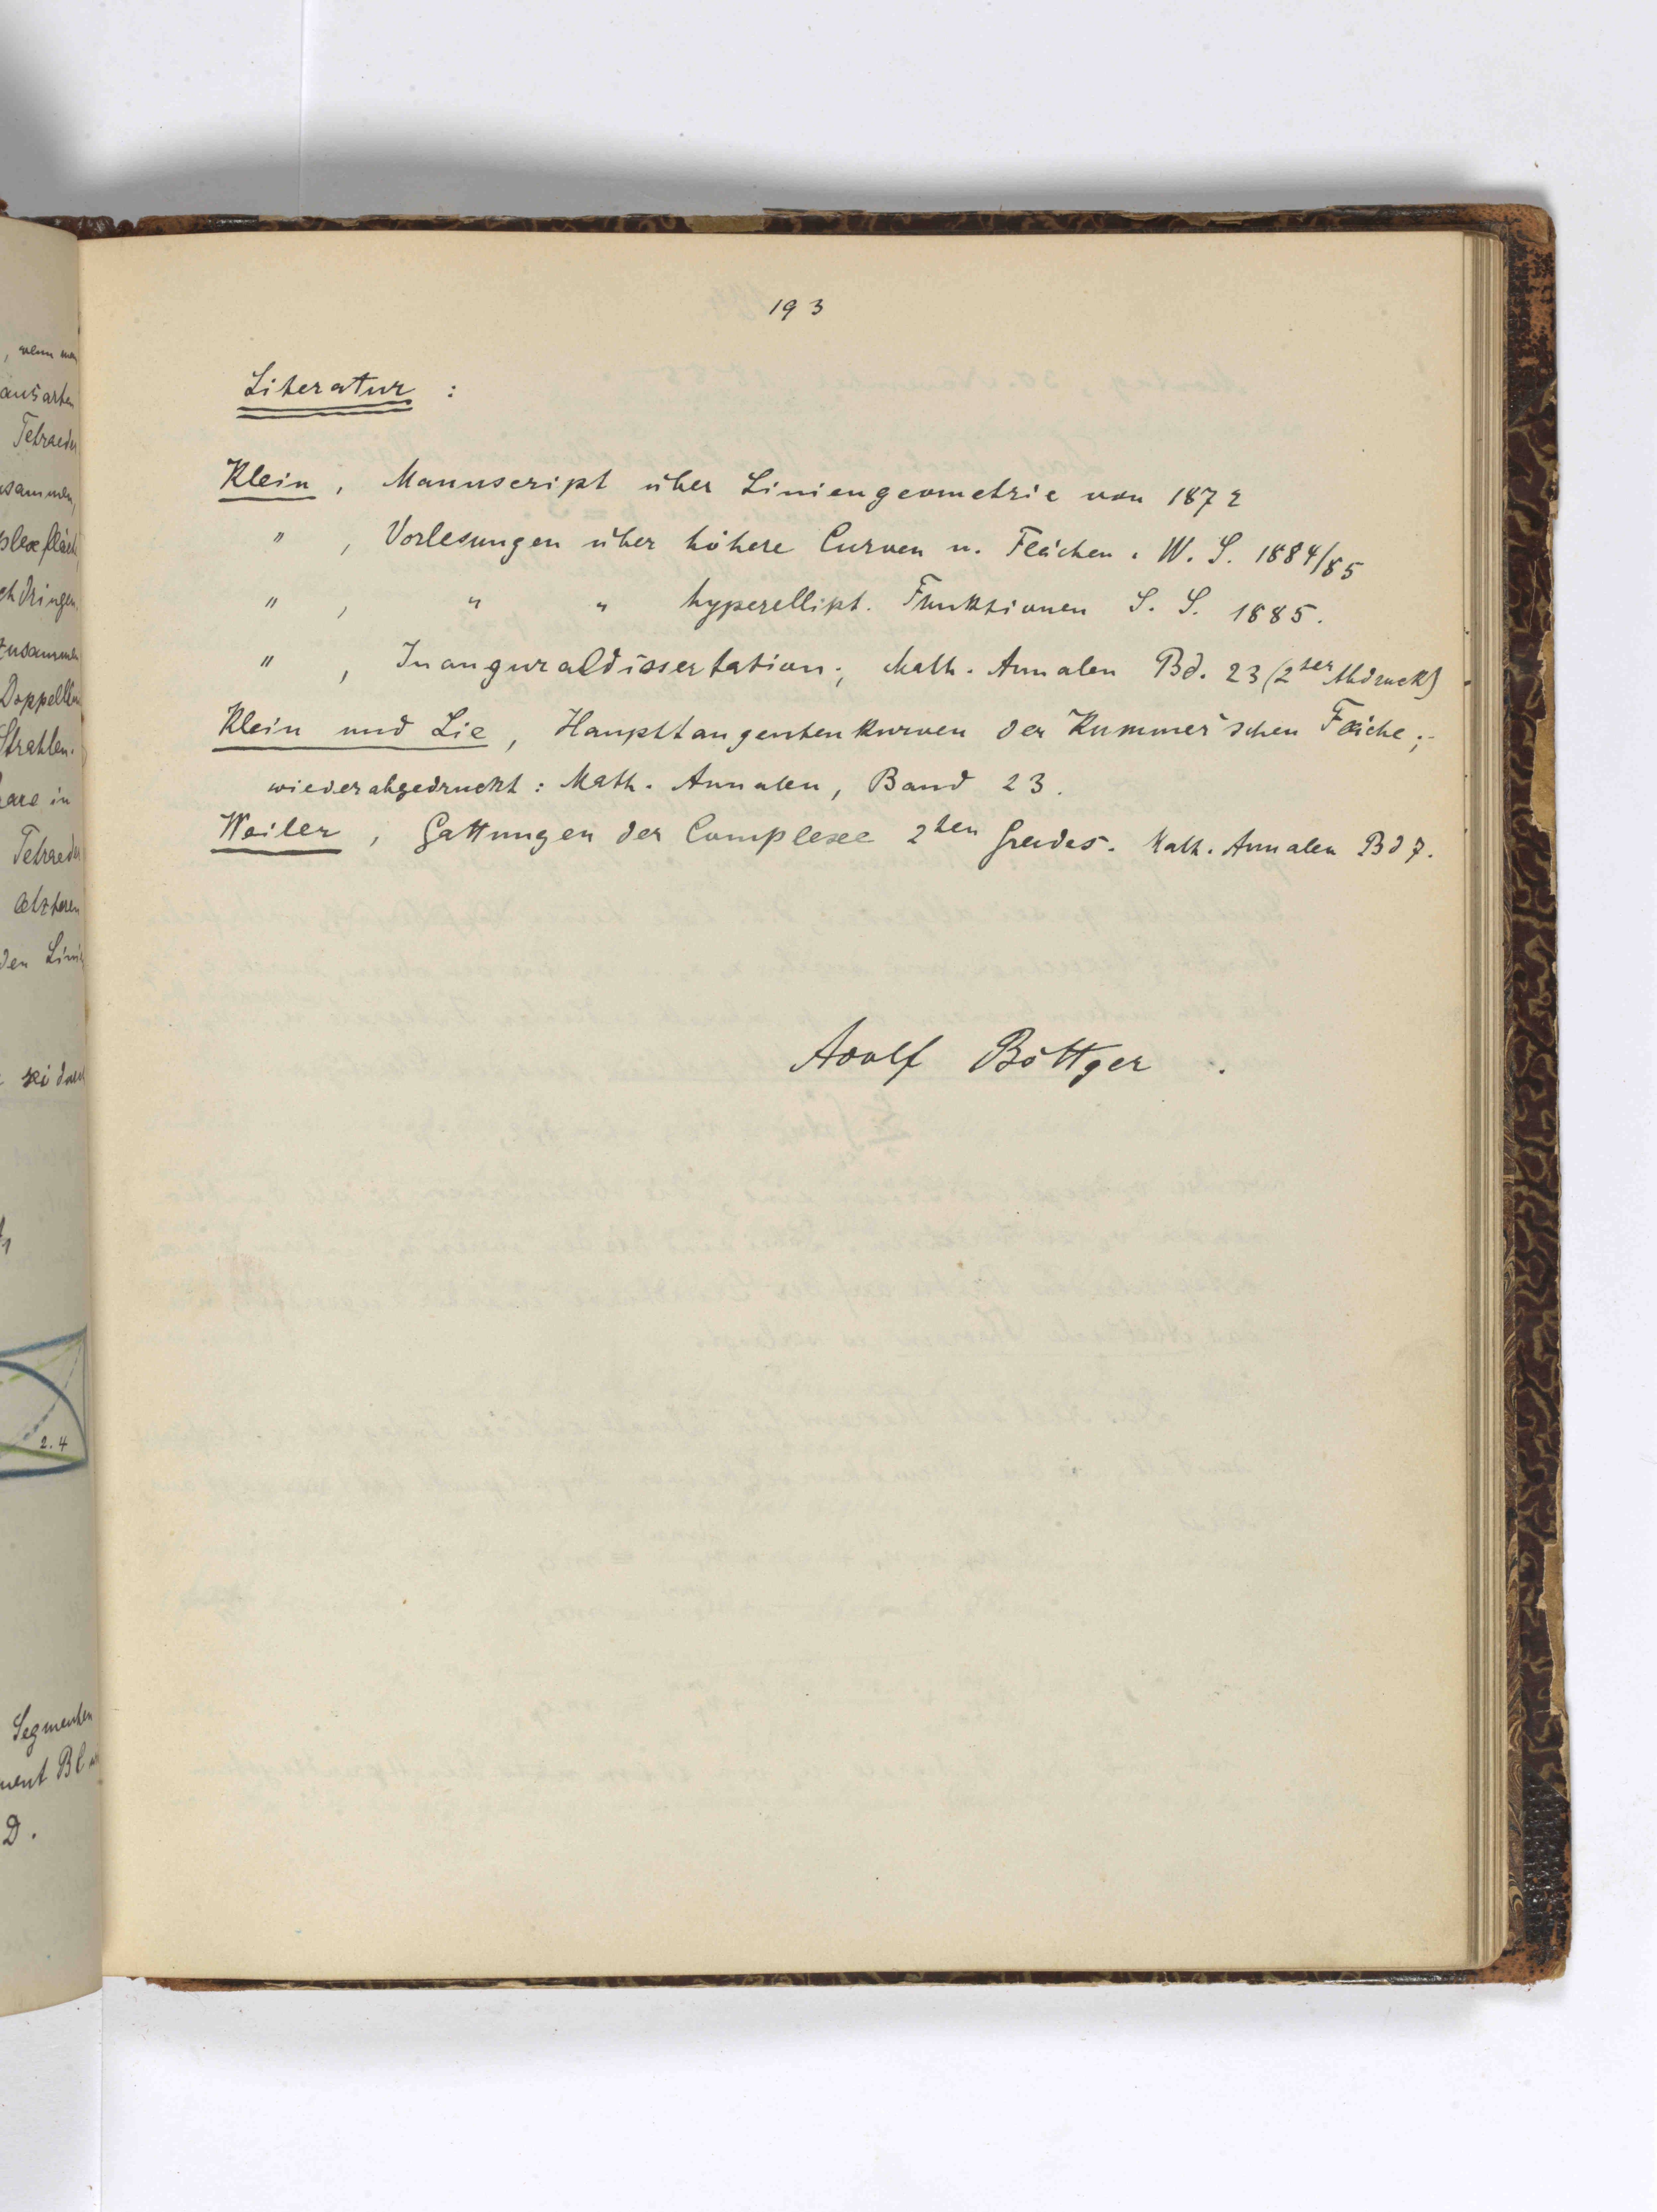 193
Literatur :
Klein , Manuscript über Liniengeometrie von 1872
" , Vorlesungen über höhere Curven u. Flächen . W. S. 1884/85
" , " " hyperellipt. Funktionen S. S. 1885.
" , Inauguraldissertation ; Math. Annalen Bd. 23 (2ter Abdruck)
Klein und Lie , Haupttangentenkurven der Kummer'schen Fläche ;
wiederabgedruckt : Math. Annalen, Band 23 .
Weiler , Gattungen der Complexe 2ten Grades . Math. Annalen Bd 7.
Adolf Böttger .
, wenn man
ausarten
Tetraeder
zusammen
Doppellinien
Strahlen.
in
Tetraeder
letzteren
den Linien
sei
2.4
Segmenten
D .